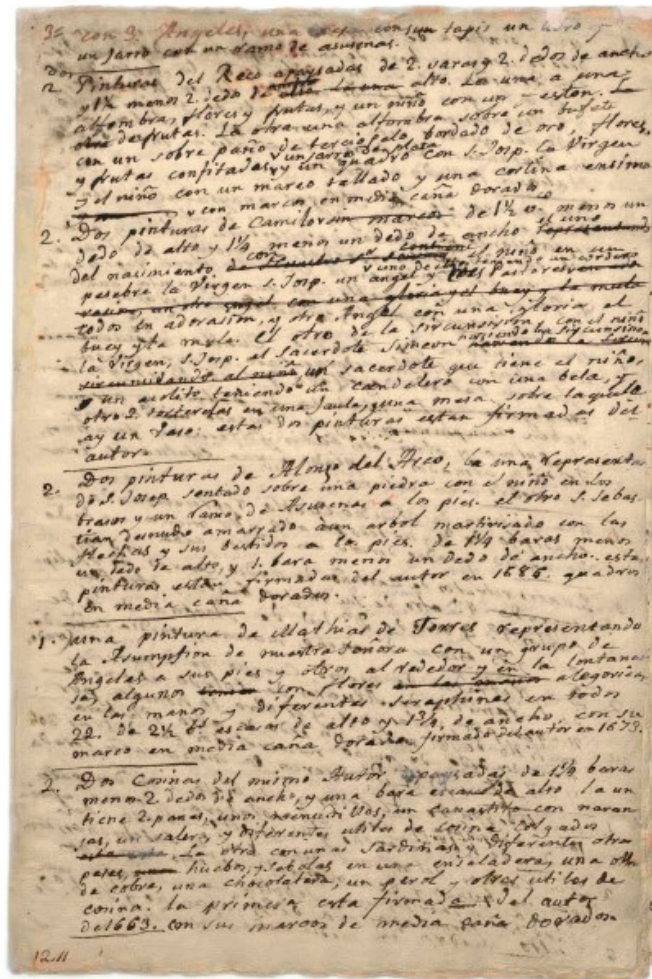 3ª con 3 Angeles, una con sun tapis un
un Jarro con un ramo de asusenas.
Dos
2 Pinturas del Reco apaysadas de 2. varas y 2. dedos de ancho
y 1¼ menos 2. dedo de alto. La una a una
alfombra, flores y frutas, y un niño con un feston. La
otra de frutas. La otra una alfombra sobre un bufete
con un sobre paño de terciopelo bordado de oro, flores,
y frutas confitadas, y un jarro de plata y un quadro con S. Josp. la Virgen
y el niño con un marco tallado y una cortina ensima
y con marcos en media caña dorados
2. Dos pinturas de Camilo con marcos de 1½ v. menos un
dedo de alto y 1¼ menos un dedo de ancho el uno representando
del nacimiento con el niño en un
pesebre la Virgen S. Josp. un angel y tres Pastores y uno de ellos teniendo un cordero
con una gloria y el buey y la mula
todos en adorasion, y otro Angel con una gloria, el
buey y la mula. el otro de la sircunsision con el niño
la Virgen, S. Josp. al Sacerdote Simeon haciendo la sircunsision
sircunsidando al niño, un sacerdote que tiene el niño,
y un acolito teniendo un candelero con una bela, y
otro 2. tortolas en una Jaula, y una mesa sobre la quale
ay un Vaso: estas dos pinturas estan firmadas del
autor.
2. Dos pinturas de Alonzo del Arco, la una representa
do S. Josep sentado sobre una piedra con el niño en los
brasos y un Ramo de Asusenas a los pies. el otro S. Sebas
tian desnudo amarrado a un arbol martirisado con las
flechas y sus bestidos a los pies. de 1¼ baras menos
un dedo de alto, y 1. bara menos un dedo de ancho. estas
pinturas estan firmadas del autor en 1686. quadros
en media caña dorados.
1. una pintura de Mathias de Torres representando
la Asumption de nuestra Señora con un grupo de
Angeles a sus pies y otros al rededor y en la lontana
sa, algunos con flores alegoricas
en las manos y diferentes Seraphines en todos
22. de 2½ bs. escasas de alto y 1¾ de ancho, con su
marco en media caña dorada firmado del autor en 1673.
2. Dos Cosinas del mismo Autor apaysadas de 1¼ baras
menos 2. dedos de ancho, y una bara escasa de alto. la un
tiene 2. panes, unos menudillos, un canastito con naran
sas, un salero, y diferentes utiles de cosina colgados
La otra con unas Sardinas y diferentes otros
peses, huebos, y sebolas en una ensaladera, una olla
de cobre, una chocolatera, un perol y otros utiles de
cosina. la primera esta firmada del autor
de 1663. con sus marcos de media caña dorados
12.11